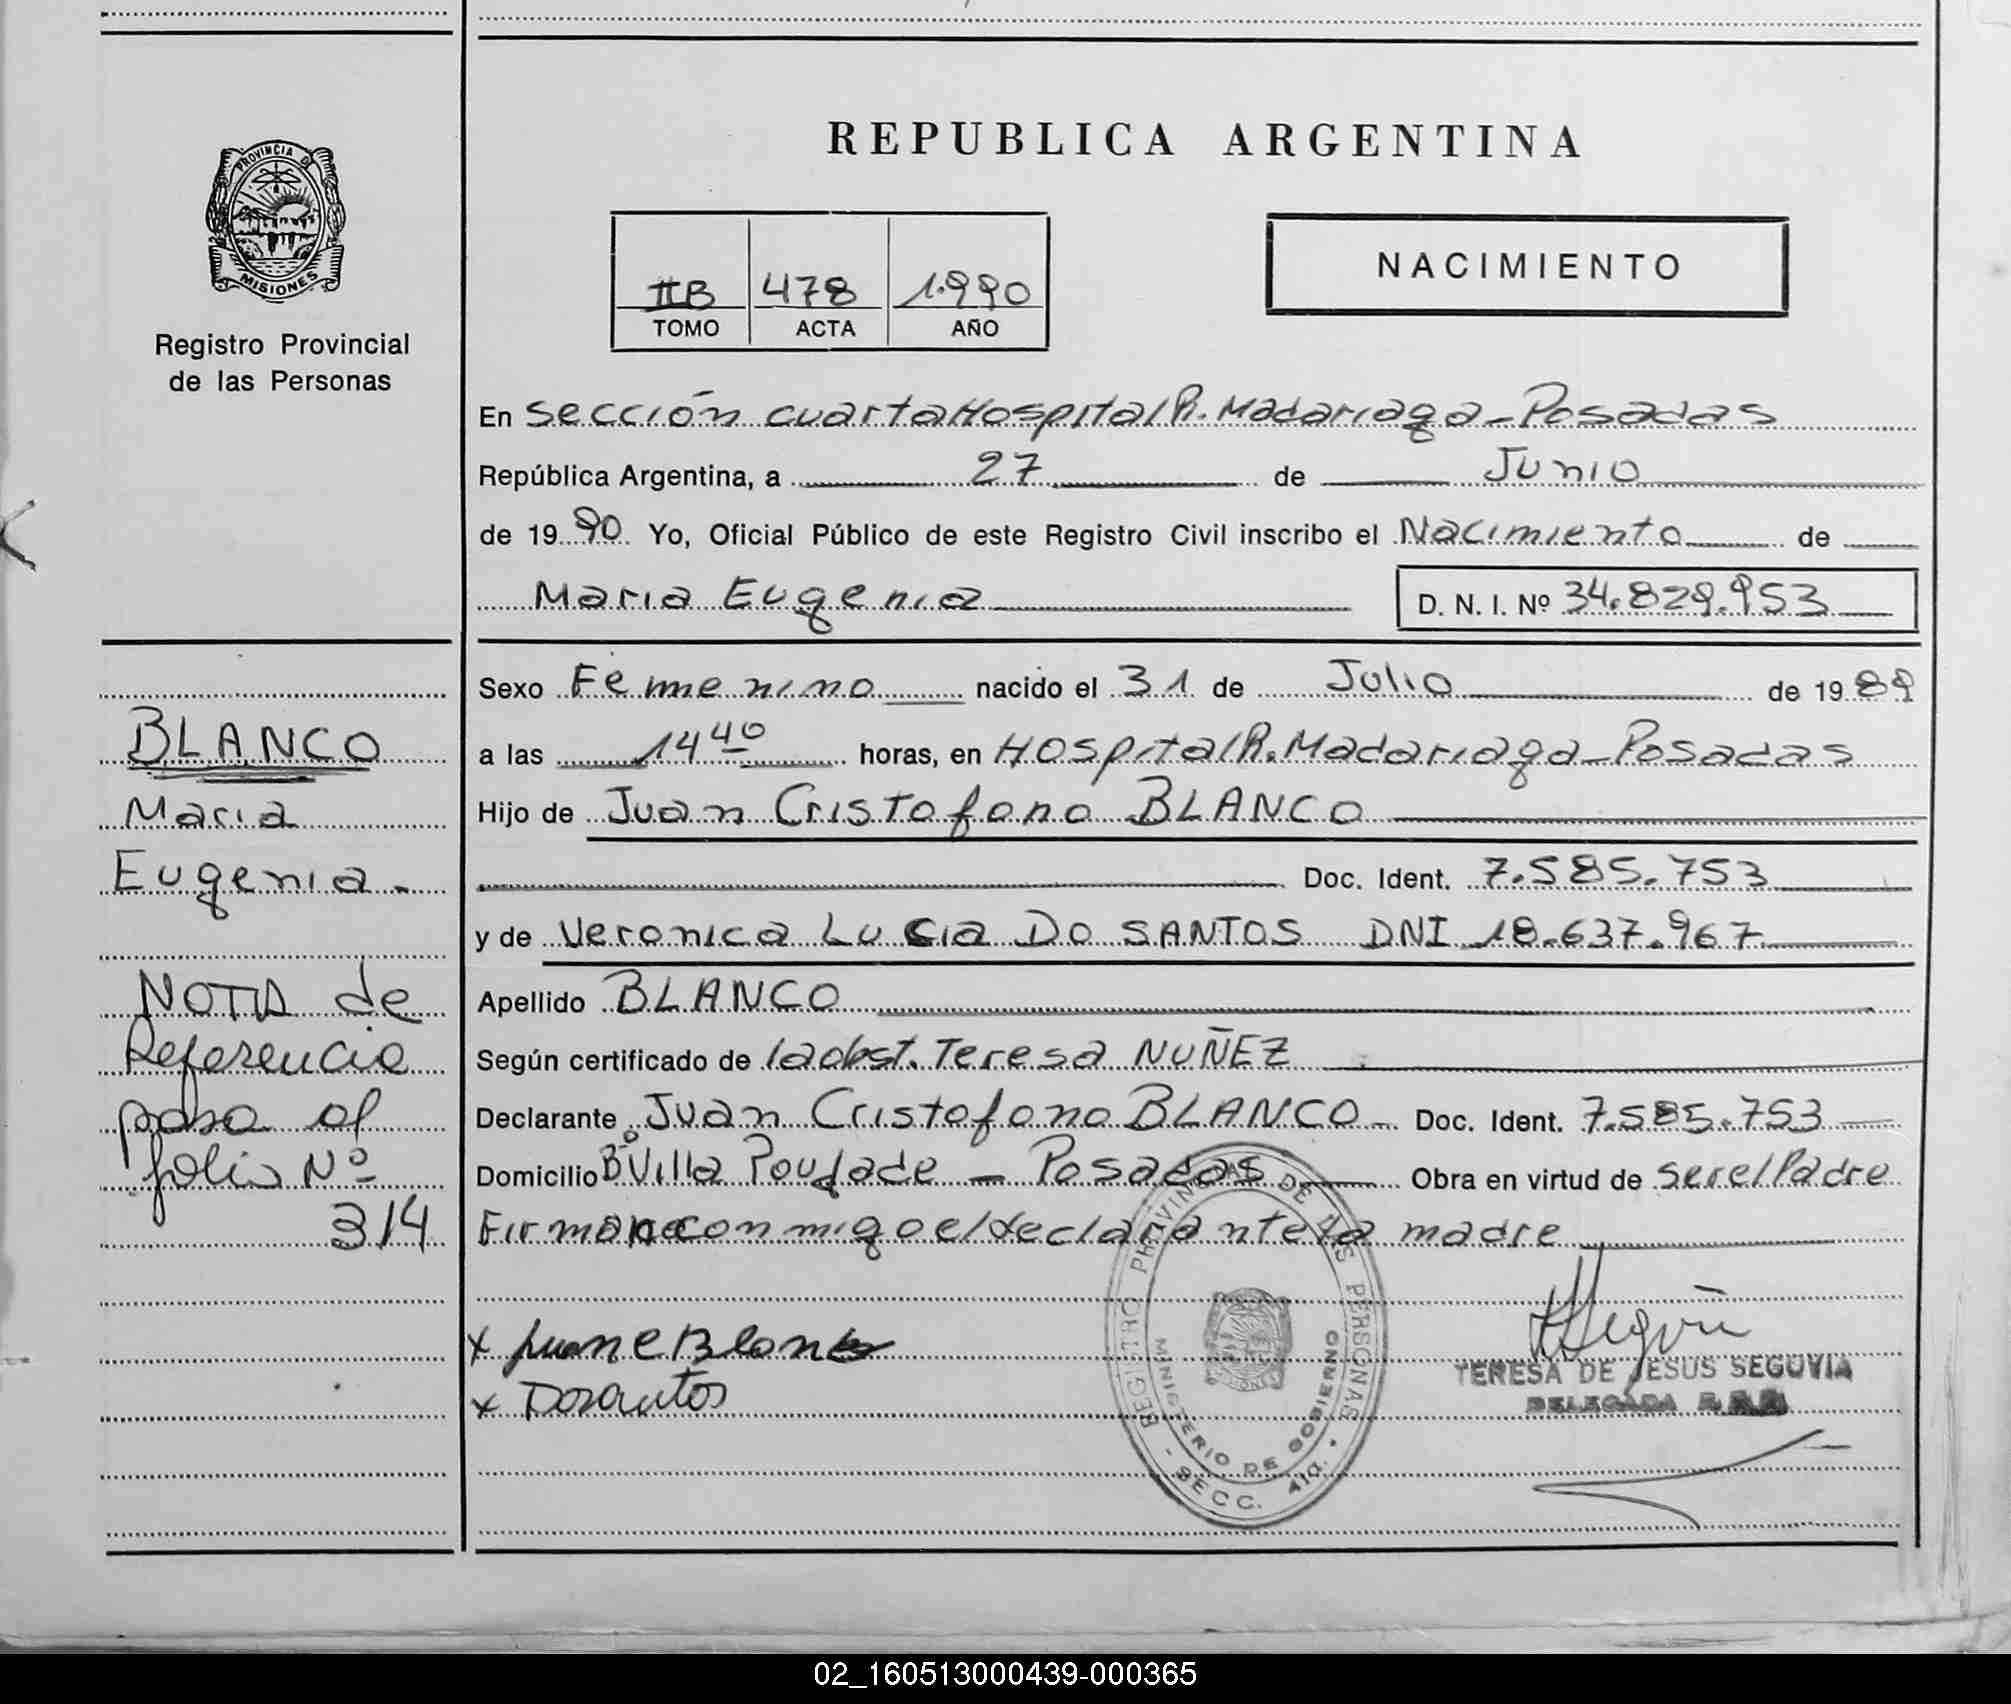 REPUBLICA ARGENTINA
PROVINCIA D MISIONES
Registro Provincial
de las Personas
IIB 478 1.990
TOMO ACTA AÑO
NACIMIENTO
En sección cuarta Hospital R. Madariaga - Posadas
República Argentina, a 27 de Junio
de 1990 Yo, Oficial Público de este Registro Civil inscribo el Nacimiento de
Maria Eugenia D. N. I. Nº 34.829.953
Sexo Femenino nacido el 31 de Julio de 1989
a las 14 40 horas, en Hospital R. Madariaga - Posadas
Hijo de Juan Cristofono BLANCO
Doc. Ident. 7.585.753
y de Veronica Lucia DO SANTOS DNI 18.637.967
Apellido BLANCO
Según certificado de la obst. Teresa NUÑEZ
Declarante Juan Cristofono BLANCO Doc. Ident. 7.585.753
Domicilio Bº Villa Poujade - Posadas Obra en virtud de ser el Padre
conmigo el declarante la madre
BLANCO
Maria
Eugenia.
NOTA de
Referencia
pasa al
folio Nº
314
x Juan C Blanco
x Dosantos
REGISTRO PROVINCIAL DE LAS PERSONAS
MINISTERIO DE GOBIERNO
SECC. 4ta.
TERESA DE JESUS SEGOVIA
DELEGADA
02_160513000439-000365